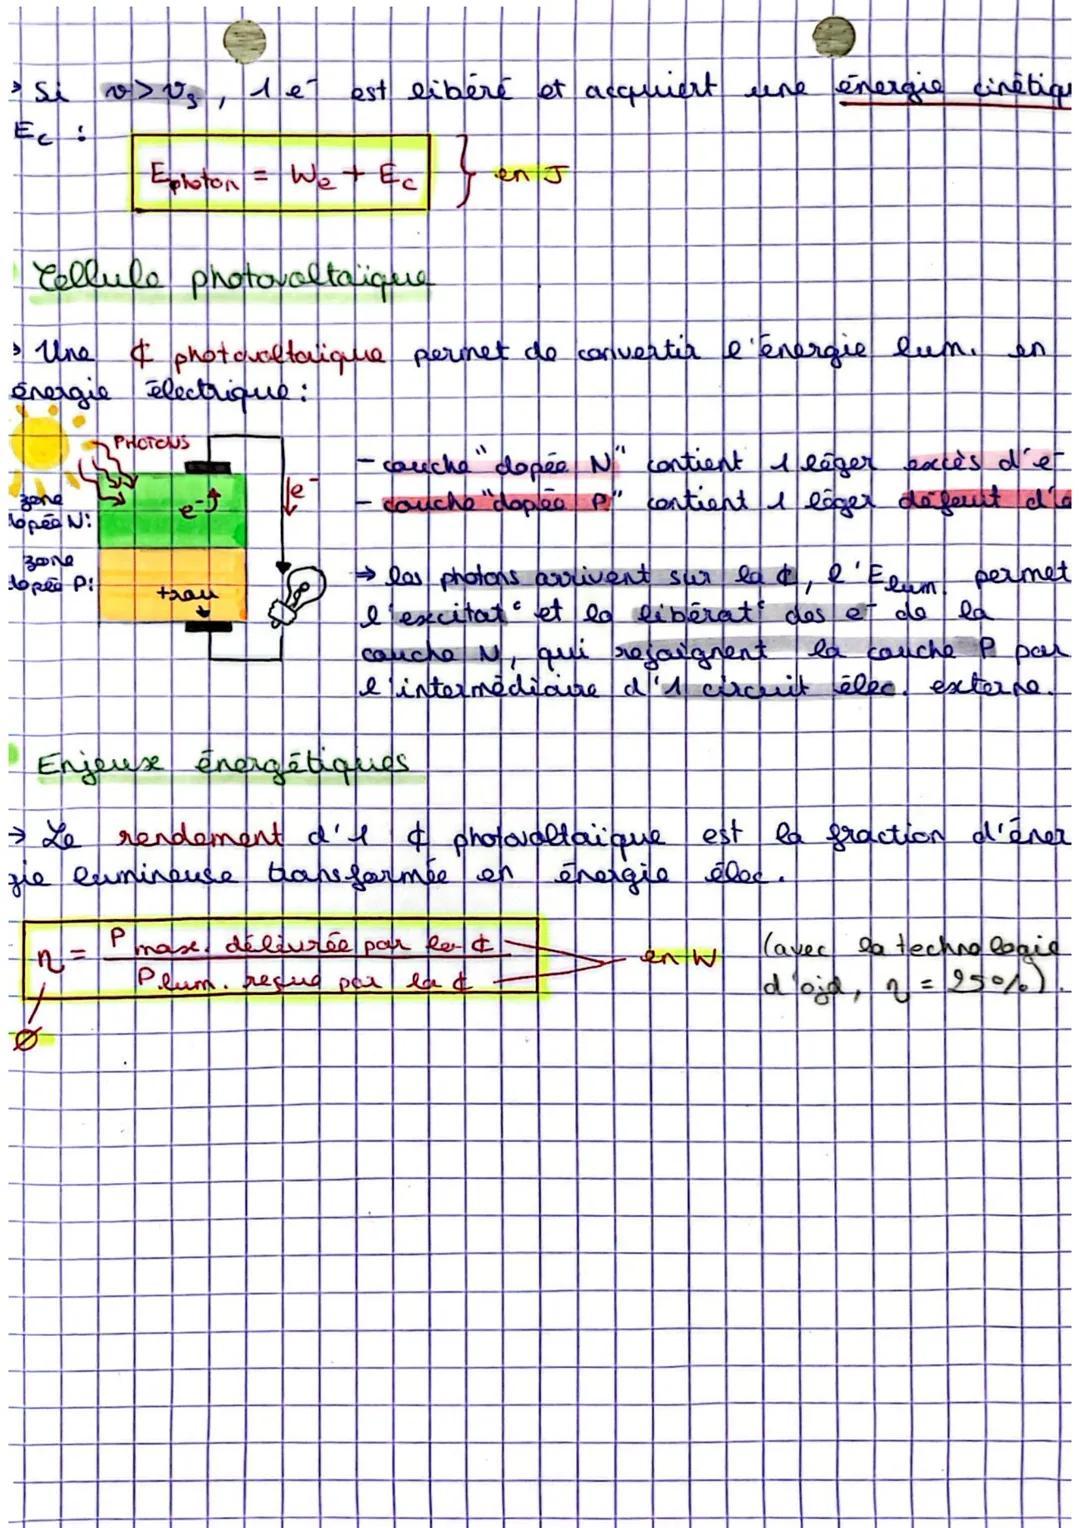 → Si ν > νs, 1 e⁻ est libéré et acquiert une énergie cinétiq
Ec :
Ephoton = We + Ec } en J
Cellule photovoltaïque
→ Une ₵ photovoltaïque permet de convertir l'énergie lum. en
énergie électrique :
PHOTONS
e⁻
e⁻
zone
dopée N:
zone
dopée P:
+ trou
- couche "dopée N" contient 1 léger excès d'e⁻
- couche "dopée P" contient 1 léger défaut d'e
→ les photons arrivent sur la ₵, l'Elum. permet
l'excitat° et la libérat° des e⁻ de la
couche N, qui rejoignent la couche P par
l'intermédiaire d'1 circuit élec. externe.
Enjeux énergétiques
→ Le rendement d'1 ₵ photovoltaïque est la fraction d'éner
gie lumineuse transformée en énergie élec.
η = P max. délivrée par la ₵ / P lum. reçue par la ₵
en W
∅
(avec la technologie
d'ojd, η = 25%).